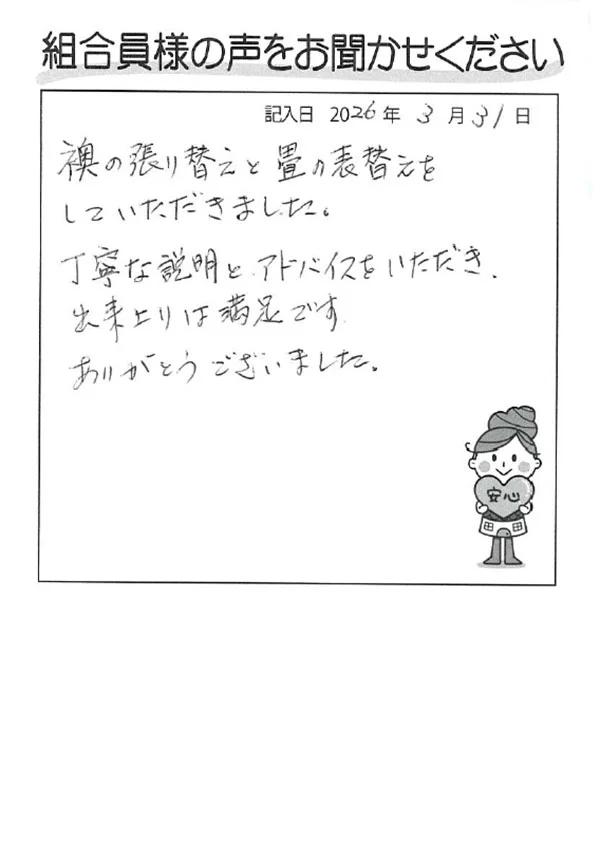 組合員様の声をお聞かせください
記入日 2026年 3月31日
襖の張り替えと畳の表替えを
していただきました。
丁寧な説明と、アドバイスをいただき、
出来上りは満足です
ありがとうございました。
安心